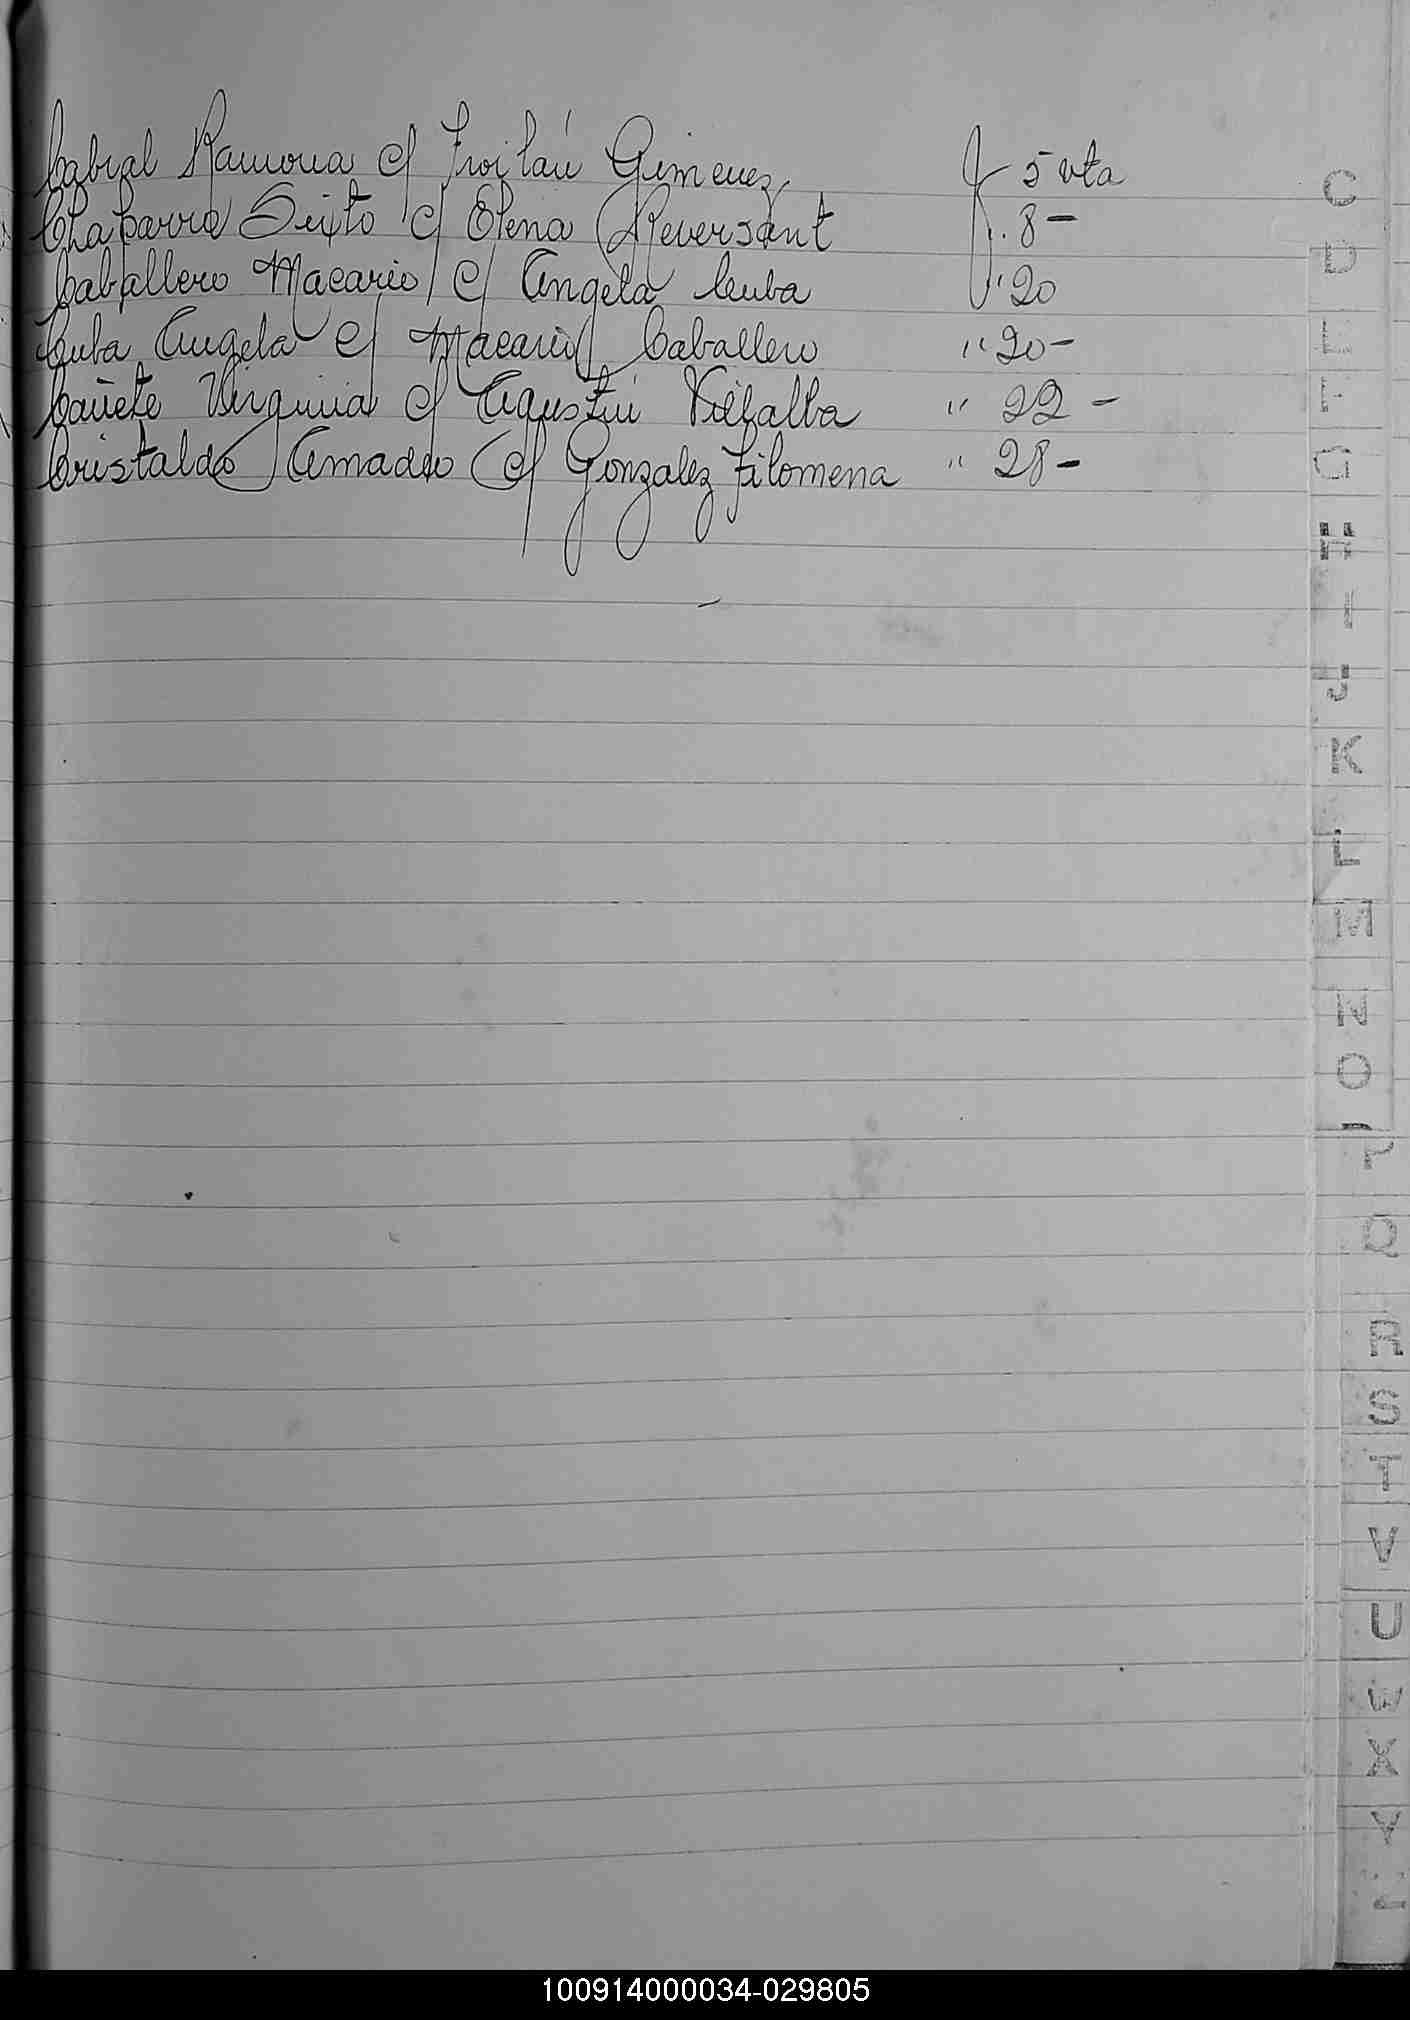 Cabral Ramona c/ Froilán Gimenez, f 5 vta
Chaparro Sixto c/ Elena Reversant f. 8-
Caballero Macario c/ Angela Cuba " 20
Cuba Angela c/ Macario Caballero " 20-
Cañete Virginia c/ Agustín Villalba " 22-
Cristaldo Amadeo c/ Gonzalez Filomena " 28-
C
D
E
F
G
H
I
J
K
L
M
N
O
P
Q
R
S
T
V
U
W
X
Y
100914000034-029805